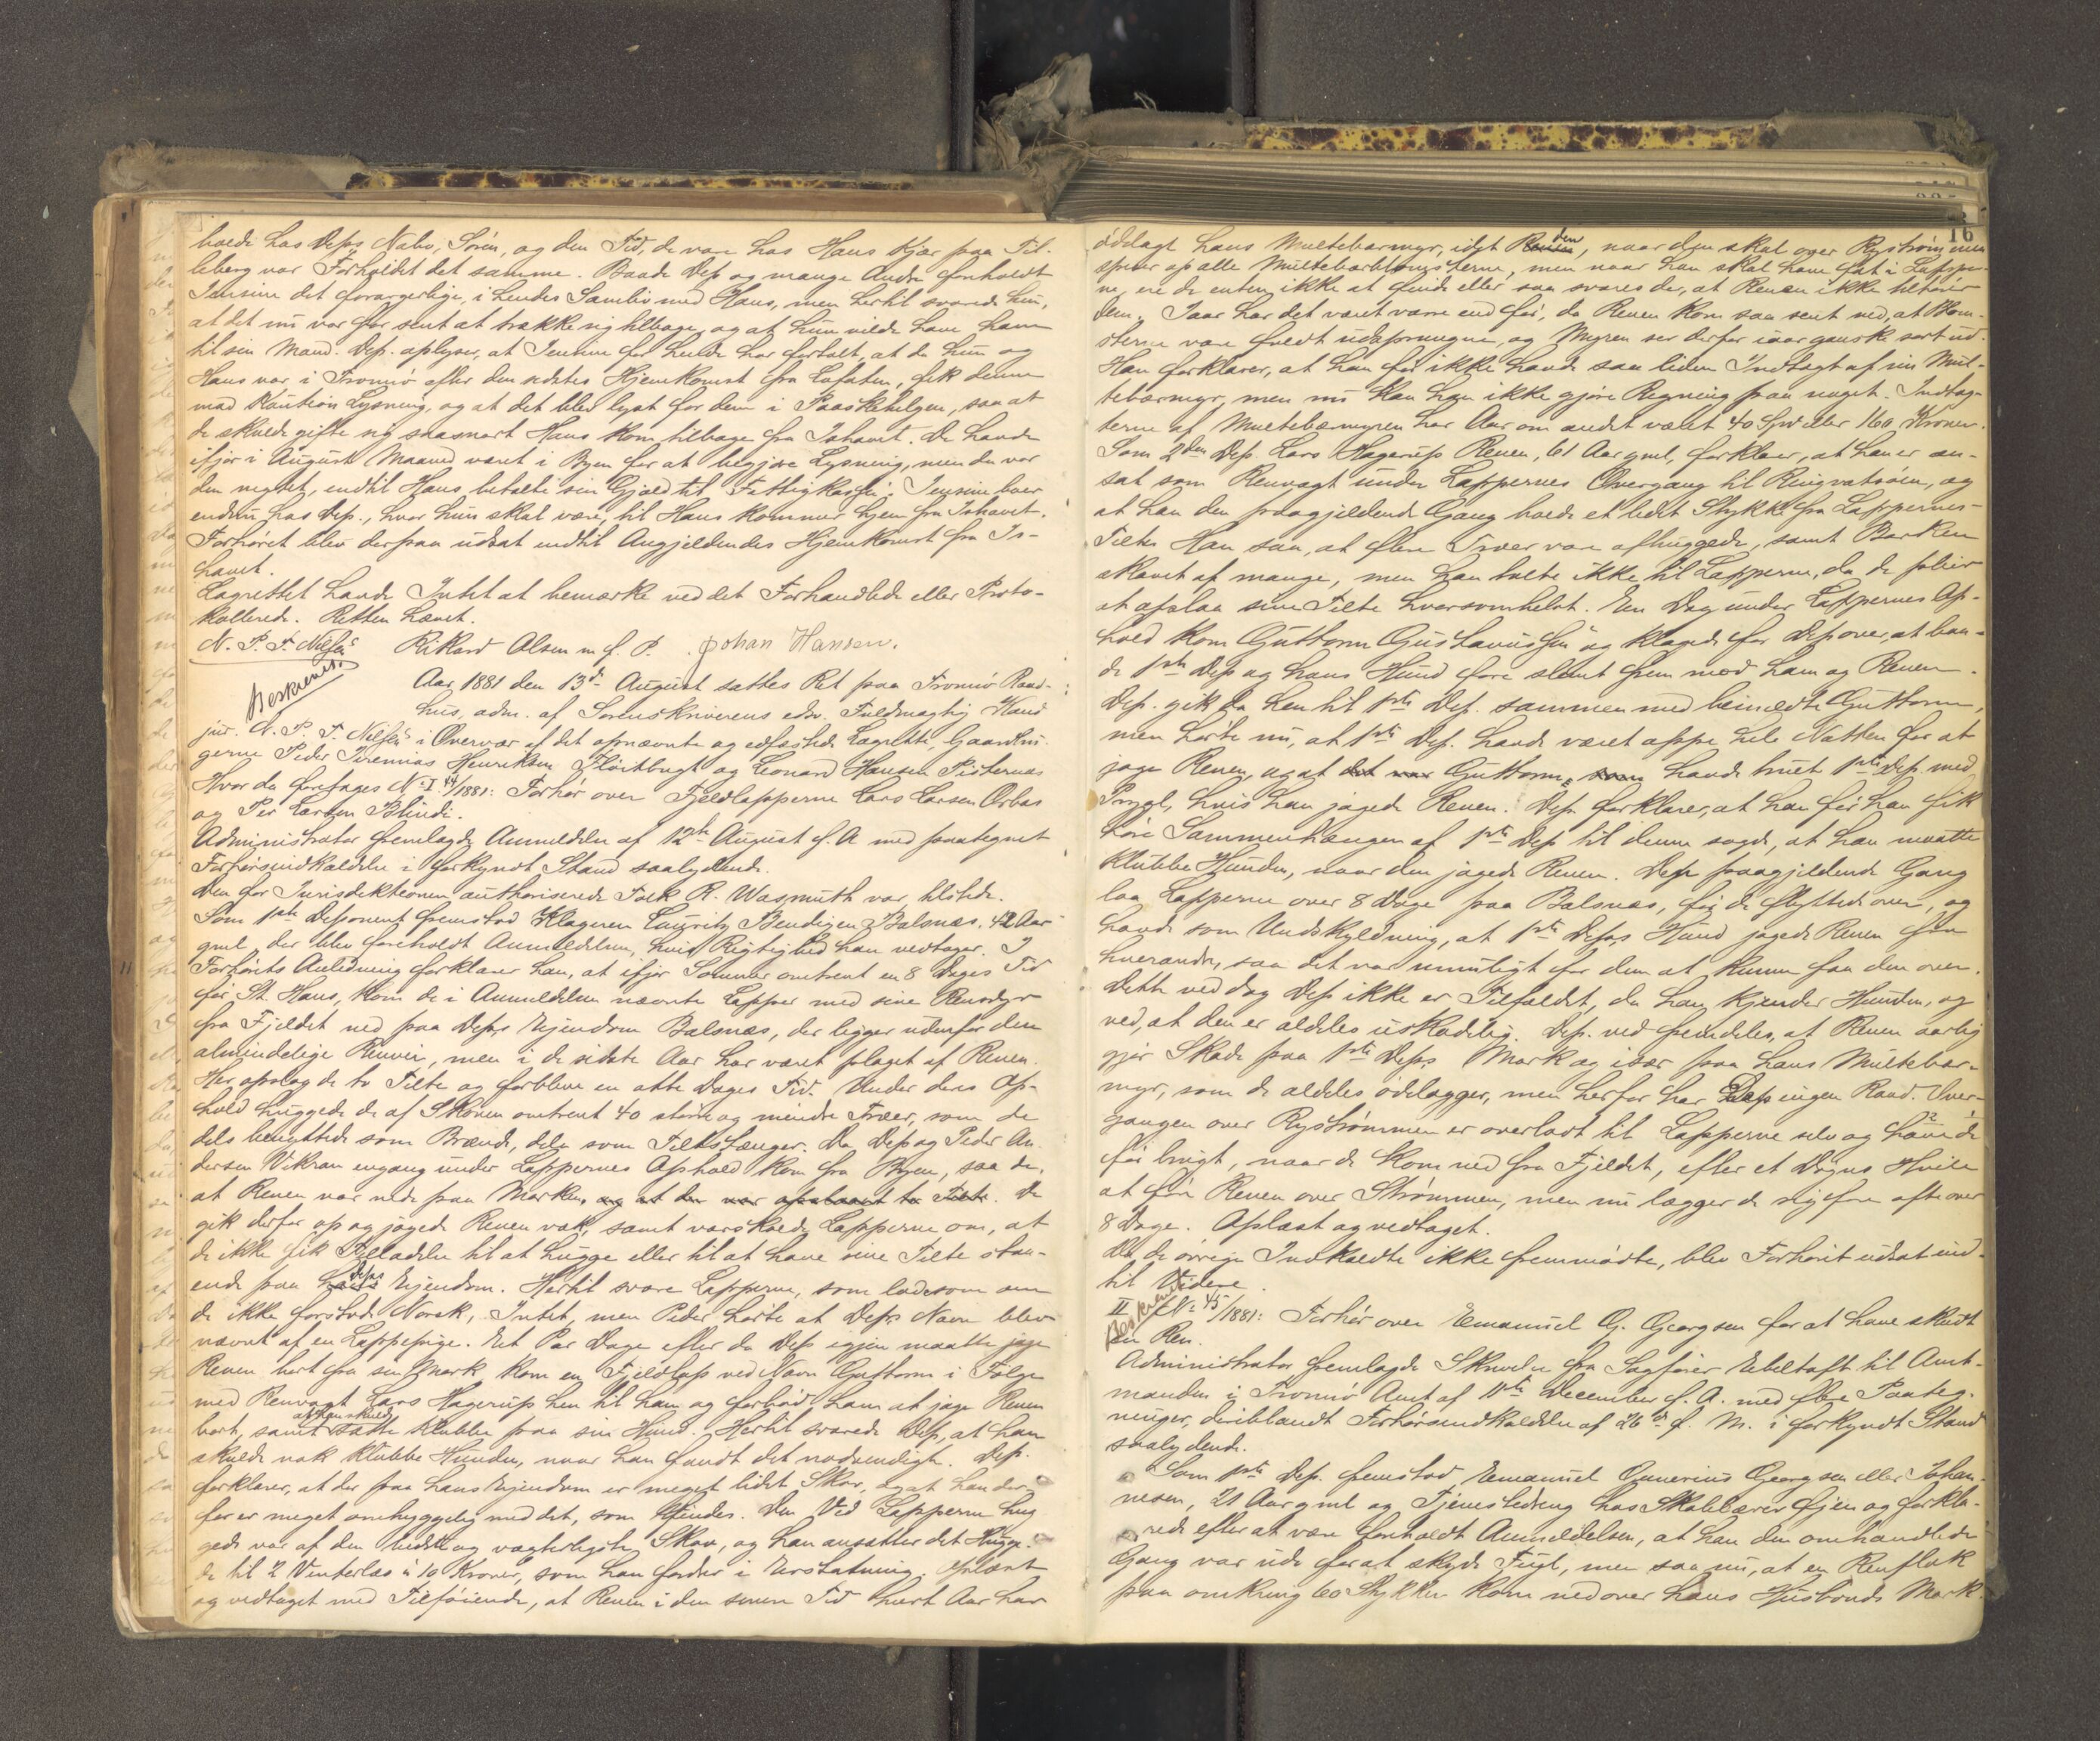 boede hos Deps Nabo, Sören, og den Tid, de var hos Hans Kjær paa Til-
leberg var Forholdet det samme. Baade Dep og mange Andre foreholdt
Jensine det forargerlige, i hendes Samliv med Hans, men hertil svarede hun,
at det nu var for sent at trække sig tilbage, og at hun vilde have ham
til sin Mand. Dep. oplyser, at Jensine for hende har fortalt, at da hun og
Hans var i Tromsö efter den sidstes Hjemkomst fra Lofoten, fik denne
mod Kaution Lysning, og at det blev lyst for dem i Paaskehelgen, saa at
de skulde gifte sig saasnart Hans kom tilbage fra Ishavet. De havde
ifjor i August Maaned været i Byen for at begjære Lysning, men da var
den negtet, indtil Hans betalte sin Gjæld til Fattigkassen. Jensine boer
endnu hos Dep., hvor hun skal være, til Hans kommer hjem fra Ishavet.
Forhöret blev derpaa udsat indtil Angjældendes Hjemkomst fra Is-
havet.
Lagrettet havde Intet at bemærke ved det Forhandlede eller Proto-
kollerede. Retten hævet.
N. P. F. Nilssen Rikard Olsen m. f. P. Johan Hansen.
Beskrevet.
Aar 1881 den 13de August sattes Ret paa Tromsö Raad-
hus, adm. af Sorenskriverens edsv. Fuldmægtig Kand
jur. N. P. F. Nilssen i Overvær af det opnævnte og edfæstede Lagrette, Gaardbru-
gerne Peder Jeremias Henriksen Flöitbugt og Leonard Hansen Pisternes
Hvor da foretages No I 44/1881: Forhör over Fjeldlapperne Lars Larsen Orbas
og Per Larsen Blinde.
Administrator fremlagde Anmeldelse af 12te August d. A. med paategnet
Forhörsindkaldelse i forkyndt Stand saalydende.
Den for Jurisdiktionen authoriserede Tolk R. Wasmuth var tilstede.
Som 1ste Deponent fremstod Klageren Lauritz Bendigsen Balsnæs. 42 Aar
gml, der blev foreholdt Anmeldelsen, hvis Rigtighed han vedtager. I
Forhörets Anledning forklarer han, at ifjor Sommer omtrent en 8 Dages Tid
för St. Hans, kom de i Anmeldelsen nævnte Lapper med sine Rensdyr
fra Fjeldet ned paa Deps Ejendom Balsnæs, der ligger udenfor den
almindelige Renvei, men i de sidste Aar har været plaget af Renen.
Her opslog de to Telte og forbleve en otte Dages Tid. Under deres Op-
hold huggede de af Skoven omtrent 40 större og mindre Træer, som de
dels benyttede som Brænde, dels som Teltstænger. Da Dep og Peder An-
dersen Vikran engang under Lappernes Ophold kom fra Byen, saa de,
at Renen var nede paa Marken, og at der var opslaaet to Telte. De
gik derfor op og jagede Renen væk, samt varskoede Lapperne om, at
de ikke fik Tilladelse til at hugge eller til at have sine Telte staa-
ende paa hans Deps Ejendom. Hertil svare Lapperne, som lod som om
de ikke forstod Norsk, Intet, men Peder hörte at Deps Navn blev
nævnt af en Lappepige. Et Par Dage efter da Dep igjen maatte jage
Renen bort fra sin Mark kom en Fjeldlap ved Navn Guttorm i Fölge
med Renvogt Lars Hagerup hen til ham og forböd ham at jage Renen
bort, samt at han skulde sætte Klubbe paa sin Hund. Hertil svarede Dep, at han
skulde nok klubbe Hunden, naar han fandt det nödvendigt. Dep.
forklarer, at der paa hans Ejendom er meget lidet Skov, og at han der-
for er meget omhyggelig med det, som findes. Den Ved Lapperne hug
gede var af den bedste og vægterligste Skov, og han ansætter det Hugge-
de til 2 Vinterlæs à 10 Kroner, som han fordrer i Erstatning. Oplæst
og vedtaget med Tilföiende, at Renen i den senere Tid hvert Aar har
16
ödelagt hans Multebærmyr, idet Renene den, naar den skal over Ryströmmen
spiser op alle Multebærblomsterne, men naar han skal have fat i Lapper-
ne, ere de enten ikke at finde eller saa svares der, at Renen ikke tilhörer
dem. Iaar har det været værre end för, da Renen kom saa sent ned, at Blom-
sterne vare fuldt udsprungne, og Myren ser derfor iaar ganske sort ud.
Han forklarer, at han för ikke havde saa liden Indtægt af sin Mul-
tebærmyr, men nu kan han ikke gjöre Regning paa noget. Indtæg-
terne af Multebærmyren har Aar om andet været 40 Spd eller 160 Kroner.
Som 2den Dep. Lars Hagerup Renen, 61 Aar gml, forklarer, at han er an-
sat som Renvogt under Lappernes Overgang til Ringvatsöen, og
at han den paagjældende Gang boede et lidet Stykke fra Lappernes
Telte. Han saa, at flere Træer vare afhuggede, samt Barken
skavet af mange, men han talte ikke til Lapperne, da de pleier
at opslaa sine Telte hvorsomhelst. En Dag under Lappernes Op-
hold kom Guttorm Gustavussen og klagede for Dep over, at baa-
de 1ste Dep og hans Hund fore slemt frem mod ham og Renen.
Dep. gik da hen til 1ste Dep. sammen med bemeldte Guttorm,
men hörte nu, at 1ste Dep. havde været oppe hele Natten for at
jage Renen, og at det var Guttorm, som havde truet 1ste Dep. med
Prygl, hvis han jagede Renen. Dep. forklarer, at han för han fik
höre Sammenhængen af 1ste Dep til denne sagde, at han maatte
klubbe Hunden, naar den jagede Renen. Dep paagjældende Gang
laa Lapperne over 8 Dage paa Balsnæs, för de flyttede over, og
havde som Undskyldning, at 1ste Deps Hund jagede Renen fra
hverandre, saa det var umuligt for dem at kunne faa den over.
Dette ved dog Dep ikke er Tilfældet, da han kjender Hunden, og
ved, at den er aldeles uskadelig. Dep. ved fremdeles, at Renen aarlig
gjör Skade paa 1ste Deps. Mark og især paa hans Multebær-
myr, som de aldeles ödelægger, men herfor har Dep ingen Raad. Over-
gangen over Ryströmmen er overladt til Lapperne selv og have de
för brugt, naar de kom ned fra Fjeldet, efter et Dögns Hvile
at före Renen over Strömmen, men nu lægger de sig fore ofte over
8 Dage. Oplæst og vedtaget.
Da de övrige Indkaldte ikke fremmödte, blev Forhöret udsat ind-
til Videre.
Beskrevet
II No 45/1881: Forhör over Emanuel O. Georgsen for at have skudt
en Ren.
Administrator fremlagde Skrivelse fra Sagförer Ebeltoft til Amt-
manden i Tromsö Amt af 11te December f. A. med flere Paateg-
ninger, deriblandt Forhörsindkaldelse af 26de f. M. i forkyndt Stand
saalydende.
Som 1ste Dep. fremstod Emanuel Onnerius Georgsen eller Johan-
nesen, 21 Aar gml og Tjenestedreng hos Skolelærer Gjen og forkla-
rede efter at være foreholdt Anmeldelsen, at han den omhandlede
Gang var ude for at skyde Fugl, men saa nu, at en Renflok
paa omkring 60 Stykker kom ned over hans Husbonds Mark.